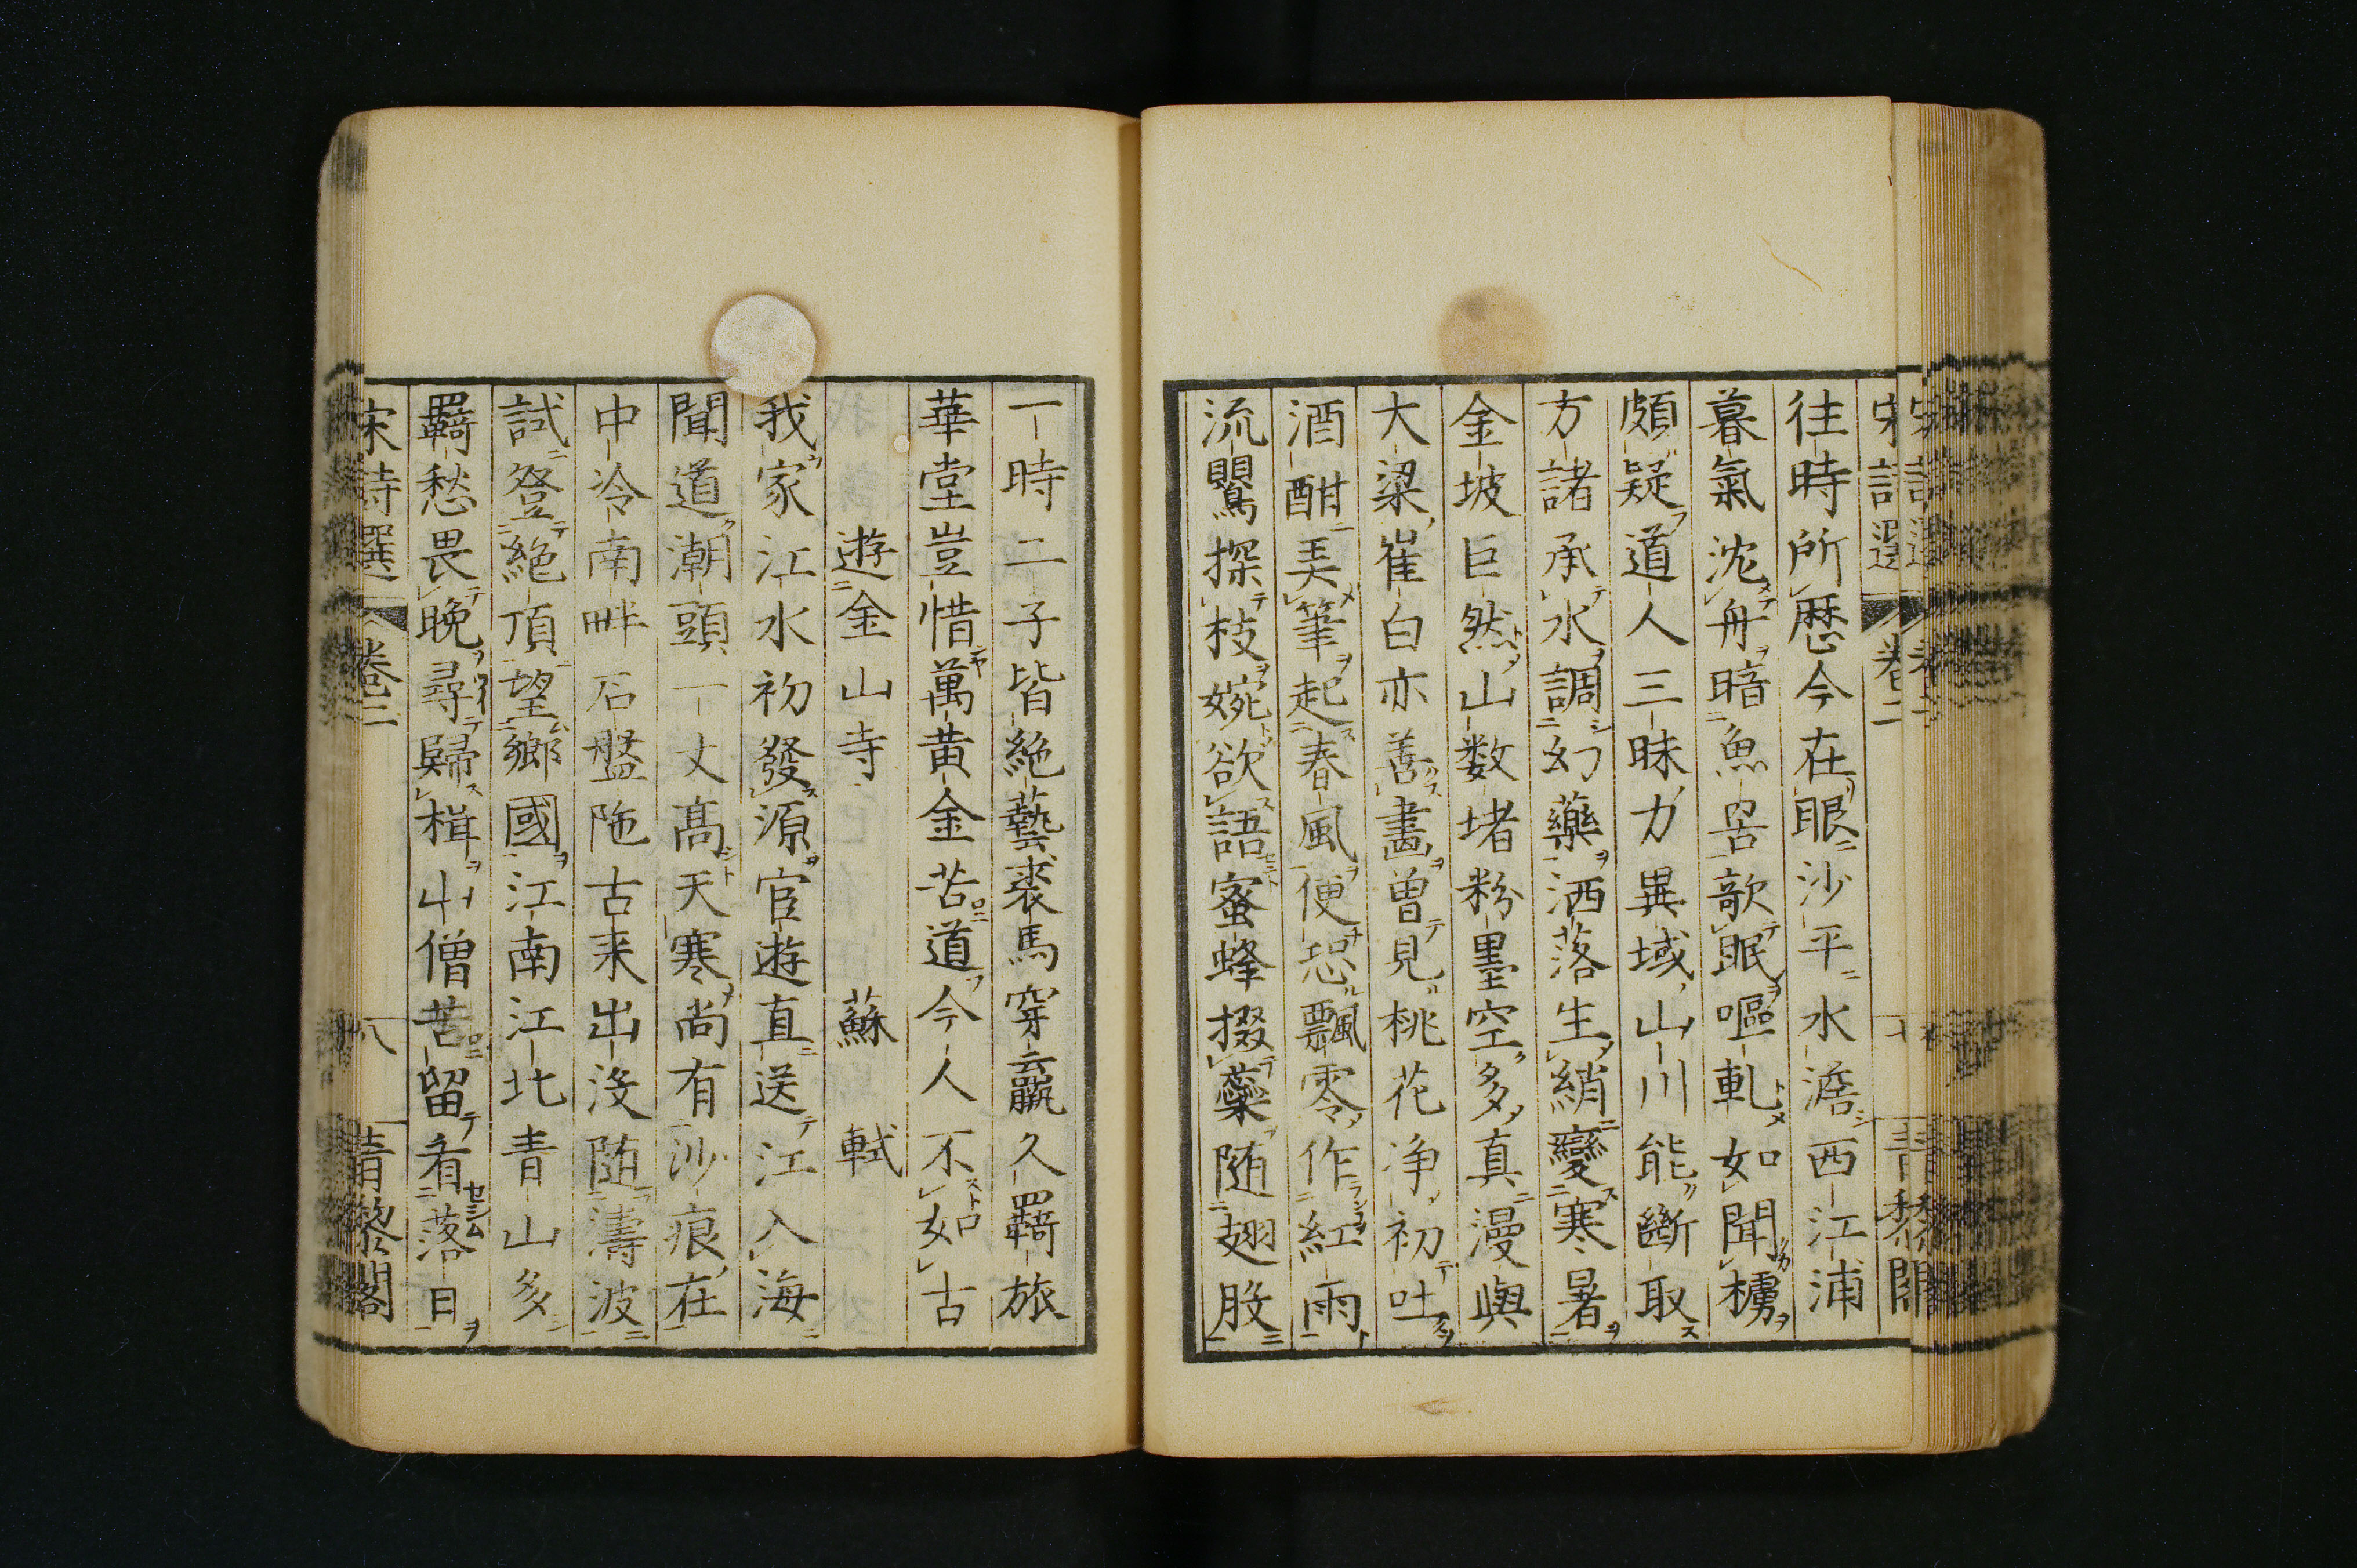 往時所歴今在眼沙平水澹西江浦
暮氣沈舟暗魚罟欹眠嘔軋如聞櫓
頗疑道人三昧力異域山川能斷取
方諸承水調幻藥洒落生綃變寒暑
金坡巨然山数堵粉墨空多真漫與
大梁崔白亦善畫曽見桃花浄初吐
酒酣弄筆起春風便恐飄零作紅雨
流鸎探枝婉欲語蜜蜂掇蘂随翅股
一時二子皆絶藝裘馬穿羸久羇旅
華堂豈惜萬黄金苦道今人不如古
遊金山寺 蘇軾
我家江水初發源宦遊直送江入海
聞道潮頭一丈髙天寒尚有沙痕在
中泠南畔石盤陁古来出没随濤波
試登絶頂望鄉國江南江北青山多
羇愁畏晩尋歸楫山僧苦留看落日
宋詩選 卷二 八 青黎閣